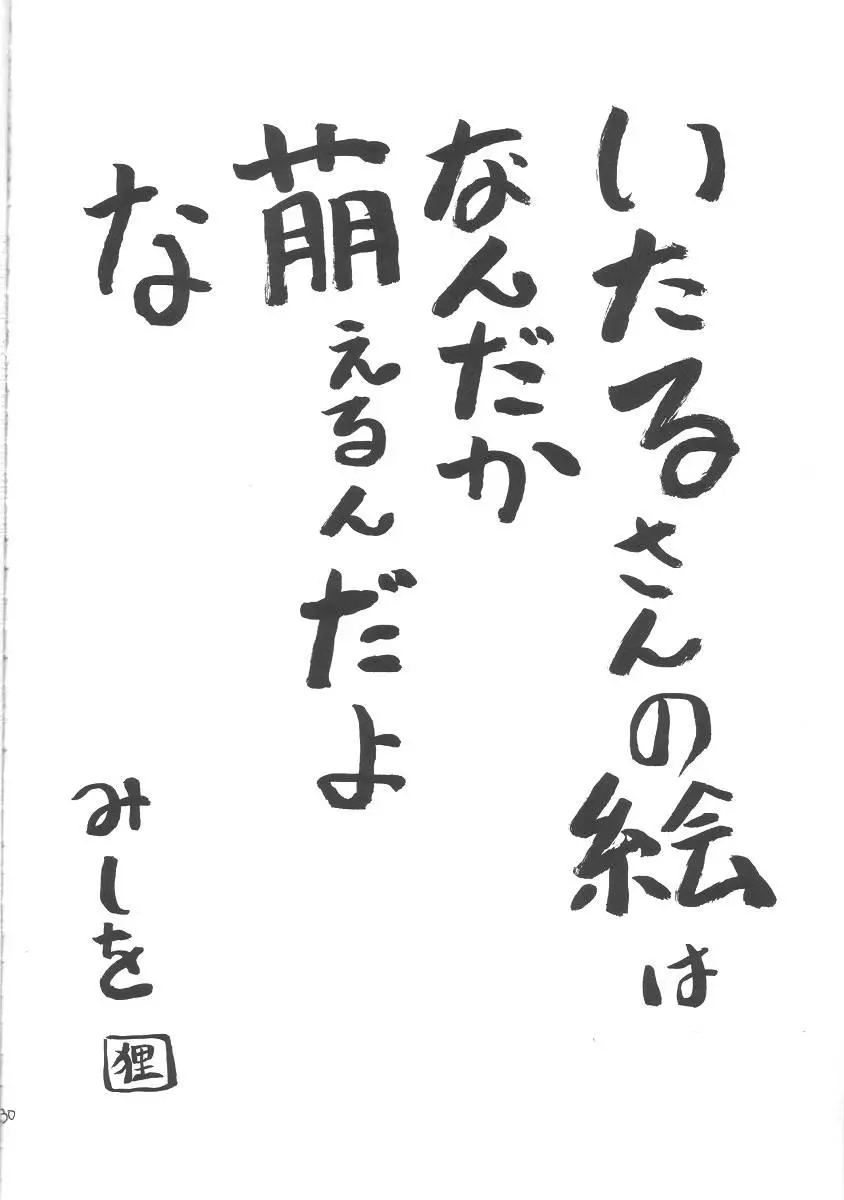 いたるさんの絵は
なんだか
萌えるんだよ
な
みしを
狸
30